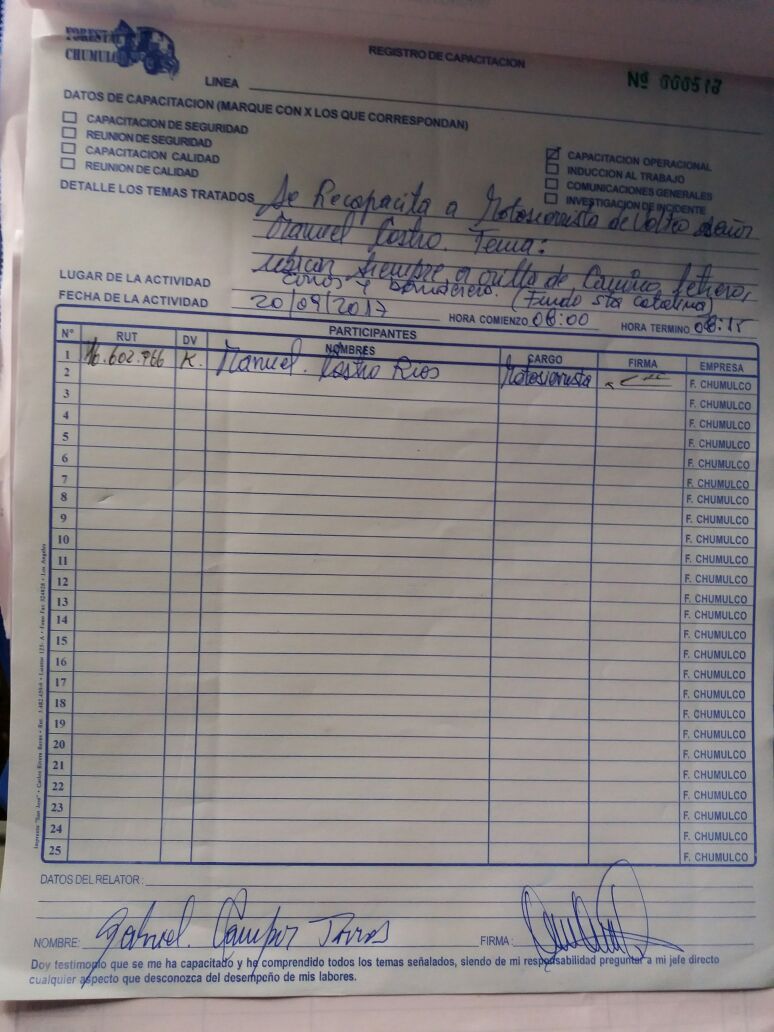 FORESTAL
CHUMULCO
REGISTRO DE CAPACITACION
Nº 000518
LINEA
DATOS DE CAPACITACION (MARQUE CON X LOS QUE CORRESPONDAN)
CAPACITACION DE SEGURIDAD
REUNION DE SEGURIDAD
CAPACITACION CALIDAD
REUNION DE CALIDAD
CAPACITACION OPERACIONAL
INDUCCION AL TRABAJO
COMUNICACIONES GENERALES
INVESTIGACION DE INCIDENTE
DETALLE LOS TEMAS TRATADOS Se Recapacita a Motosierrista de Volteo señor
Manuel Castro. Tema:
siempre a orilla de Camino, letrero,
conos y banderero. (Fundo sta catalina)
LUGAR DE LA ACTIVIDAD
FECHA DE LA ACTIVIDAD 20/09/2017 HORA COMIENZO 08:00 HORA TERMINO 08:15
PARTICIPANTES
Nº RUT DV NOMBRES CARGO FIRMA EMPRESA
1 16.602.766 K. Manuel. Castro Rios Motosierrista
2 F. CHUMULCO
3 F. CHUMULCO
4 F. CHUMULCO
5 F. CHUMULCO
6 F. CHUMULCO
7 F. CHUMULCO
8 F. CHUMULCO
9 F. CHUMULCO
10 F. CHUMULCO
11 F. CHUMULCO
12 F. CHUMULCO
13 F. CHUMULCO
14 F. CHUMULCO
15 F. CHUMULCO
16 F. CHUMULCO
17 F. CHUMULCO
18 F. CHUMULCO
19 F. CHUMULCO
20 F. CHUMULCO
21 F. CHUMULCO
22 F. CHUMULCO
23 F. CHUMULCO
24 F. CHUMULCO
25 F. CHUMULCO
DATOS DEL RELATOR:
NOMBRE: Gabriel. FIRMA:
Doy testimonio que se me ha capacitado y he comprendido todos los temas señalados, siendo de mi responsabilidad preguntar a mi jefe directo
cualquier aspecto que desconozca del desempeño de mis labores.